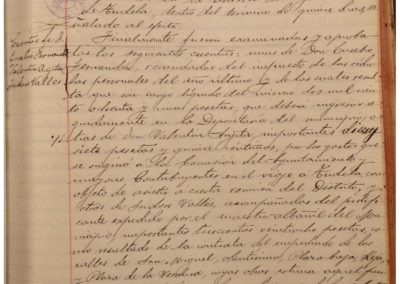 de Tudela, dentro del termino de quince dias se-
ñalado al efecto.
Cuentas de D.
Eusebio Fernandez
Valentin Angita
Isidoro Valles
Finalmente fueron examinadas y aproba-
das las siguientes cuentas; una de Don Eusebio
Fernandez, recaudador del impuesto de las cédu-
las personales del año último, de las cuales resul-
ta que son cargo líquido dos mil cien-
to ochenta y una pesetas, que deben ingresar
en la Depositaria del municipio;
otras de Don Valentin Angita, importantes diez y
siete pesetas y quince centimos, por los gastos que
se originó a la Comision del Ayuntamiento y
mayores Contribuyentes en el viaje a Tudela, con
objeto de asistir a cierta reunion del Distrito, y
otras de Isidoro Valles, acompañadas del certifi-
cante expedido por el maestro albañil del
municipio, importantes trescientas veintiocho pesetas, co-
mo resultado de la contrata del empedrado de las
calles de San Miguel, Santísimo, Plaza baja,
y Plaza de la Verdura, cuyas obras estima aquel